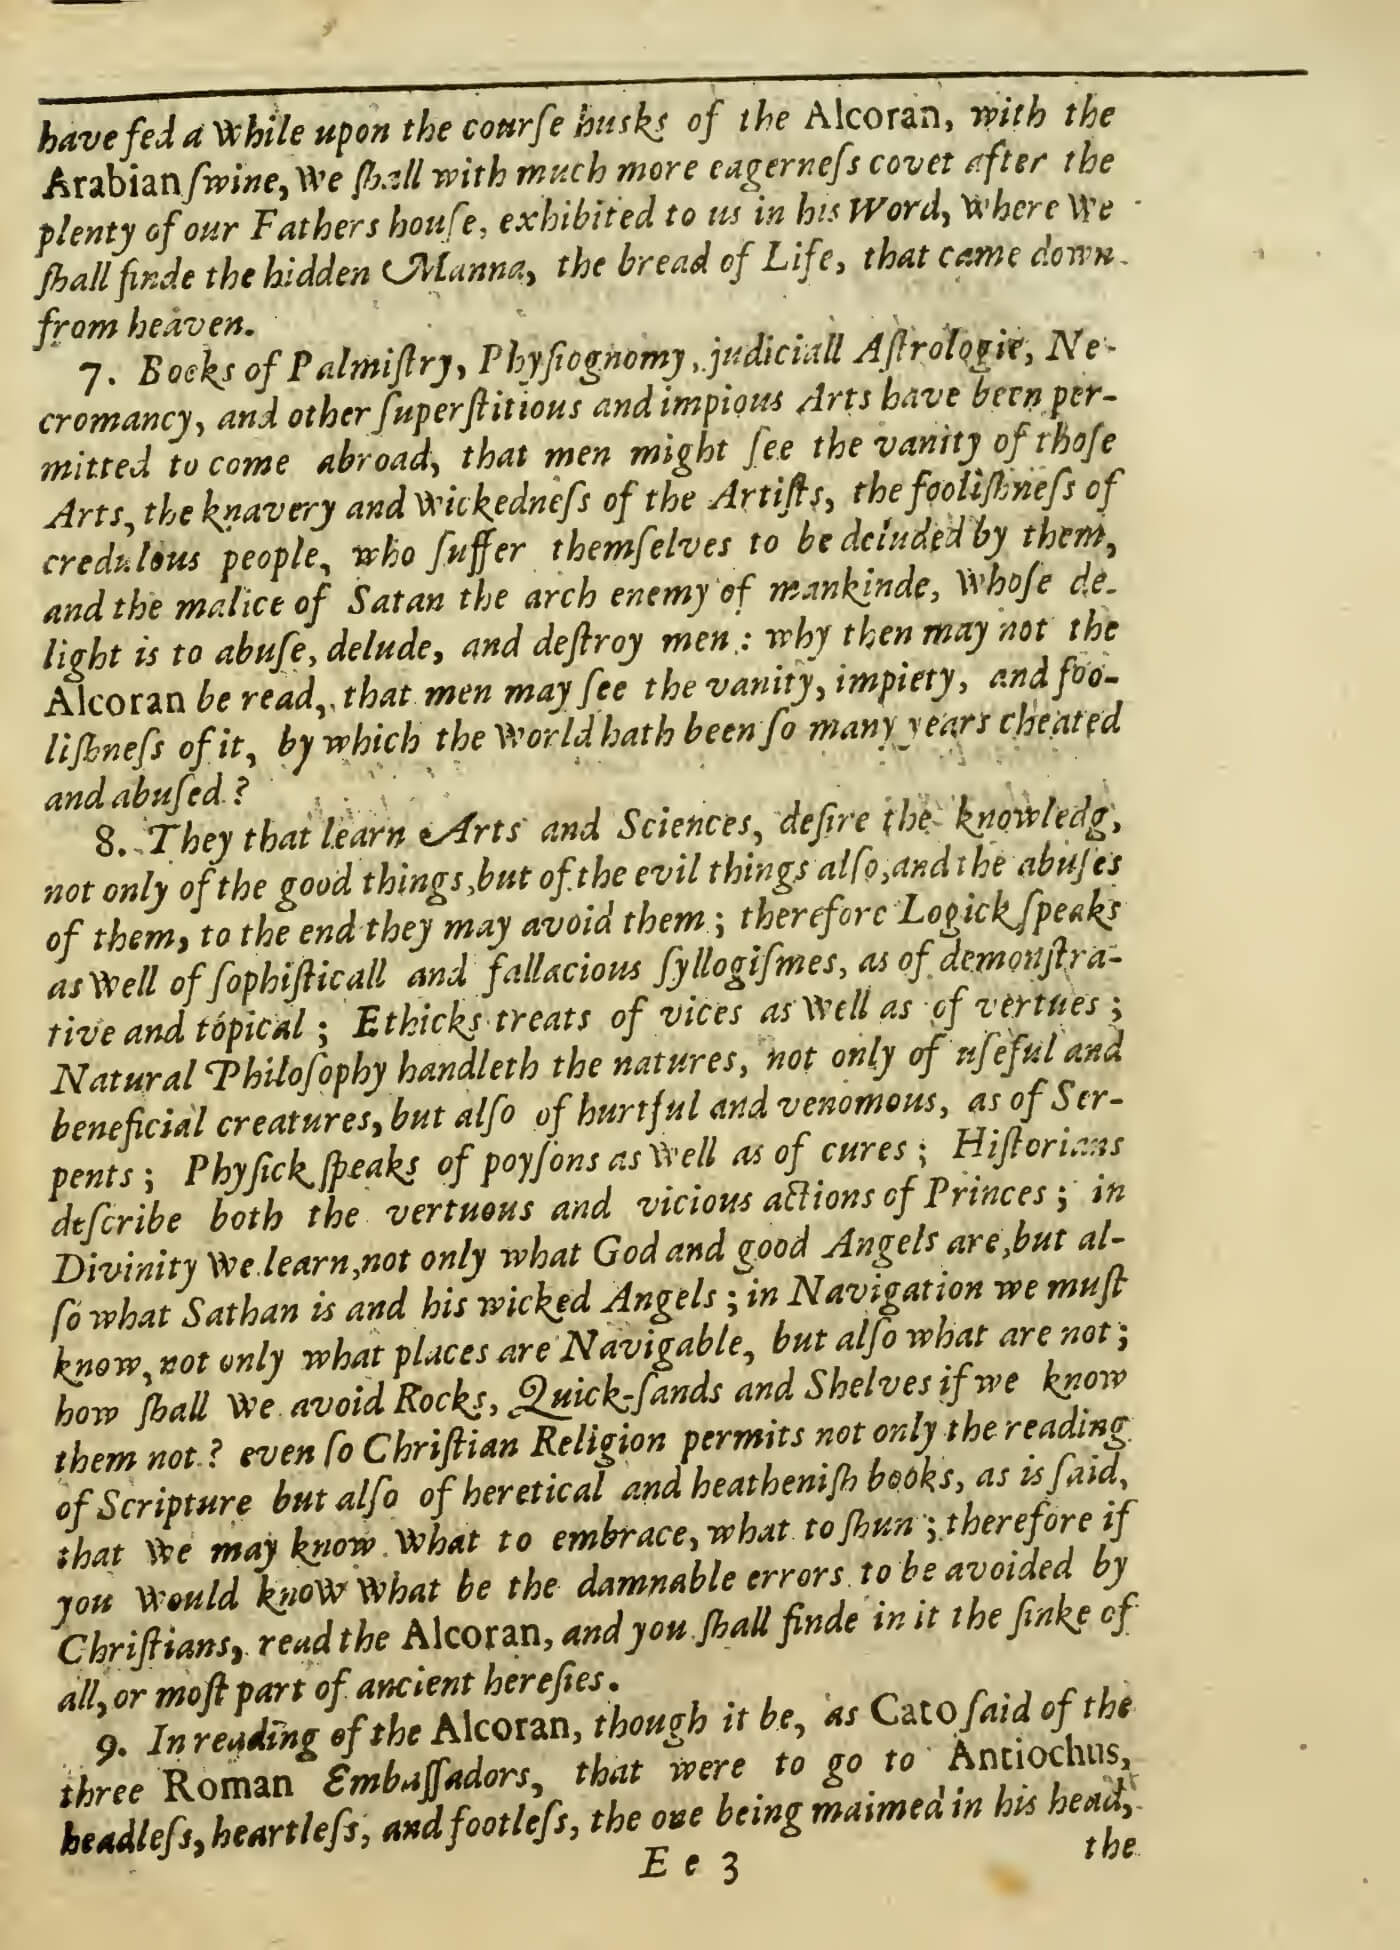 have fed a while upon the courſe husks of the Alcoran, with the
Arabian ſwine, we ſhall with much more eagerneſs covet after the
plenty of our Fathers houſe, exhibited to us in his Word, where we
ſhall finde the hidden Manna, the bread of Life, that came down
from heaven.
7. Books of Palmiſtry, Phyſiognomy, judiciall Aſtrologie, Ne-
cromancy, and other ſuperſtitious and impious Arts have been per-
mitted to come abroad, that men might ſee the vanity of thoſe
Arts, the knavery and wickedneſs of the Artiſts, the fooliſhneſs of
credulous people, who ſuffer themſelves to be deluded by them,
and the malice of Satan the arch enemy of mankinde, whoſe de-
light is to abuſe, delude, and deſtroy men: why then may not the
Alcoran be read, that men may ſee the vanity, impiety, and foo-
liſhneſs of it, by which the world hath been ſo many years cheated
and abuſed?
8. They that learn Arts and Sciences, deſire the knowledg,
not only of the good things, but of the evil things alſo, and the abuſes
of them, to the end they may avoid them; therefore Logick ſpeaks
as well of ſophiſticall and fallacious ſyllogiſmes, as of demonſtra-
tive and topical; Ethicks treats of vices as well as of vertues;
Natural Philoſophy handleth the natures, not only of uſeful and
beneficial creatures, but alſo of hurtful and venomous, as of Ser-
pents; Phyſick ſpeaks of poyſons as well as of cures; Hiſtorians
deſcribe both the vertuous and vicious actions of Princes; in
Divinity we learn, not only what God and good Angels are, but al-
ſo what Sathan is and his wicked Angels; in Navigation we muſt
know, not only what places are Navigable, but alſo what are not;
how ſhall we avoid Rocks, Quick-ſands and Shelves if we know
them not? even ſo Chriſtian Religion permits not only the reading
of Scripture but alſo of heretical and heatheniſh books, as is ſaid,
that we may know what to embrace, what to ſhun; therefore if
you would know what be the damnable errors to be avoided by
Chriſtians, read the Alcoran, and you ſhall finde in it the ſinke of
all, or moſt part of ancient hereſies.
9. In reading of the Alcoran, though it be, as Cato ſaid of the
three Roman Embaſſadors, that were to go to Antiochus,
headleſs, heartleſs, and footleſs, the one being maimed in his head,
E e 3
the